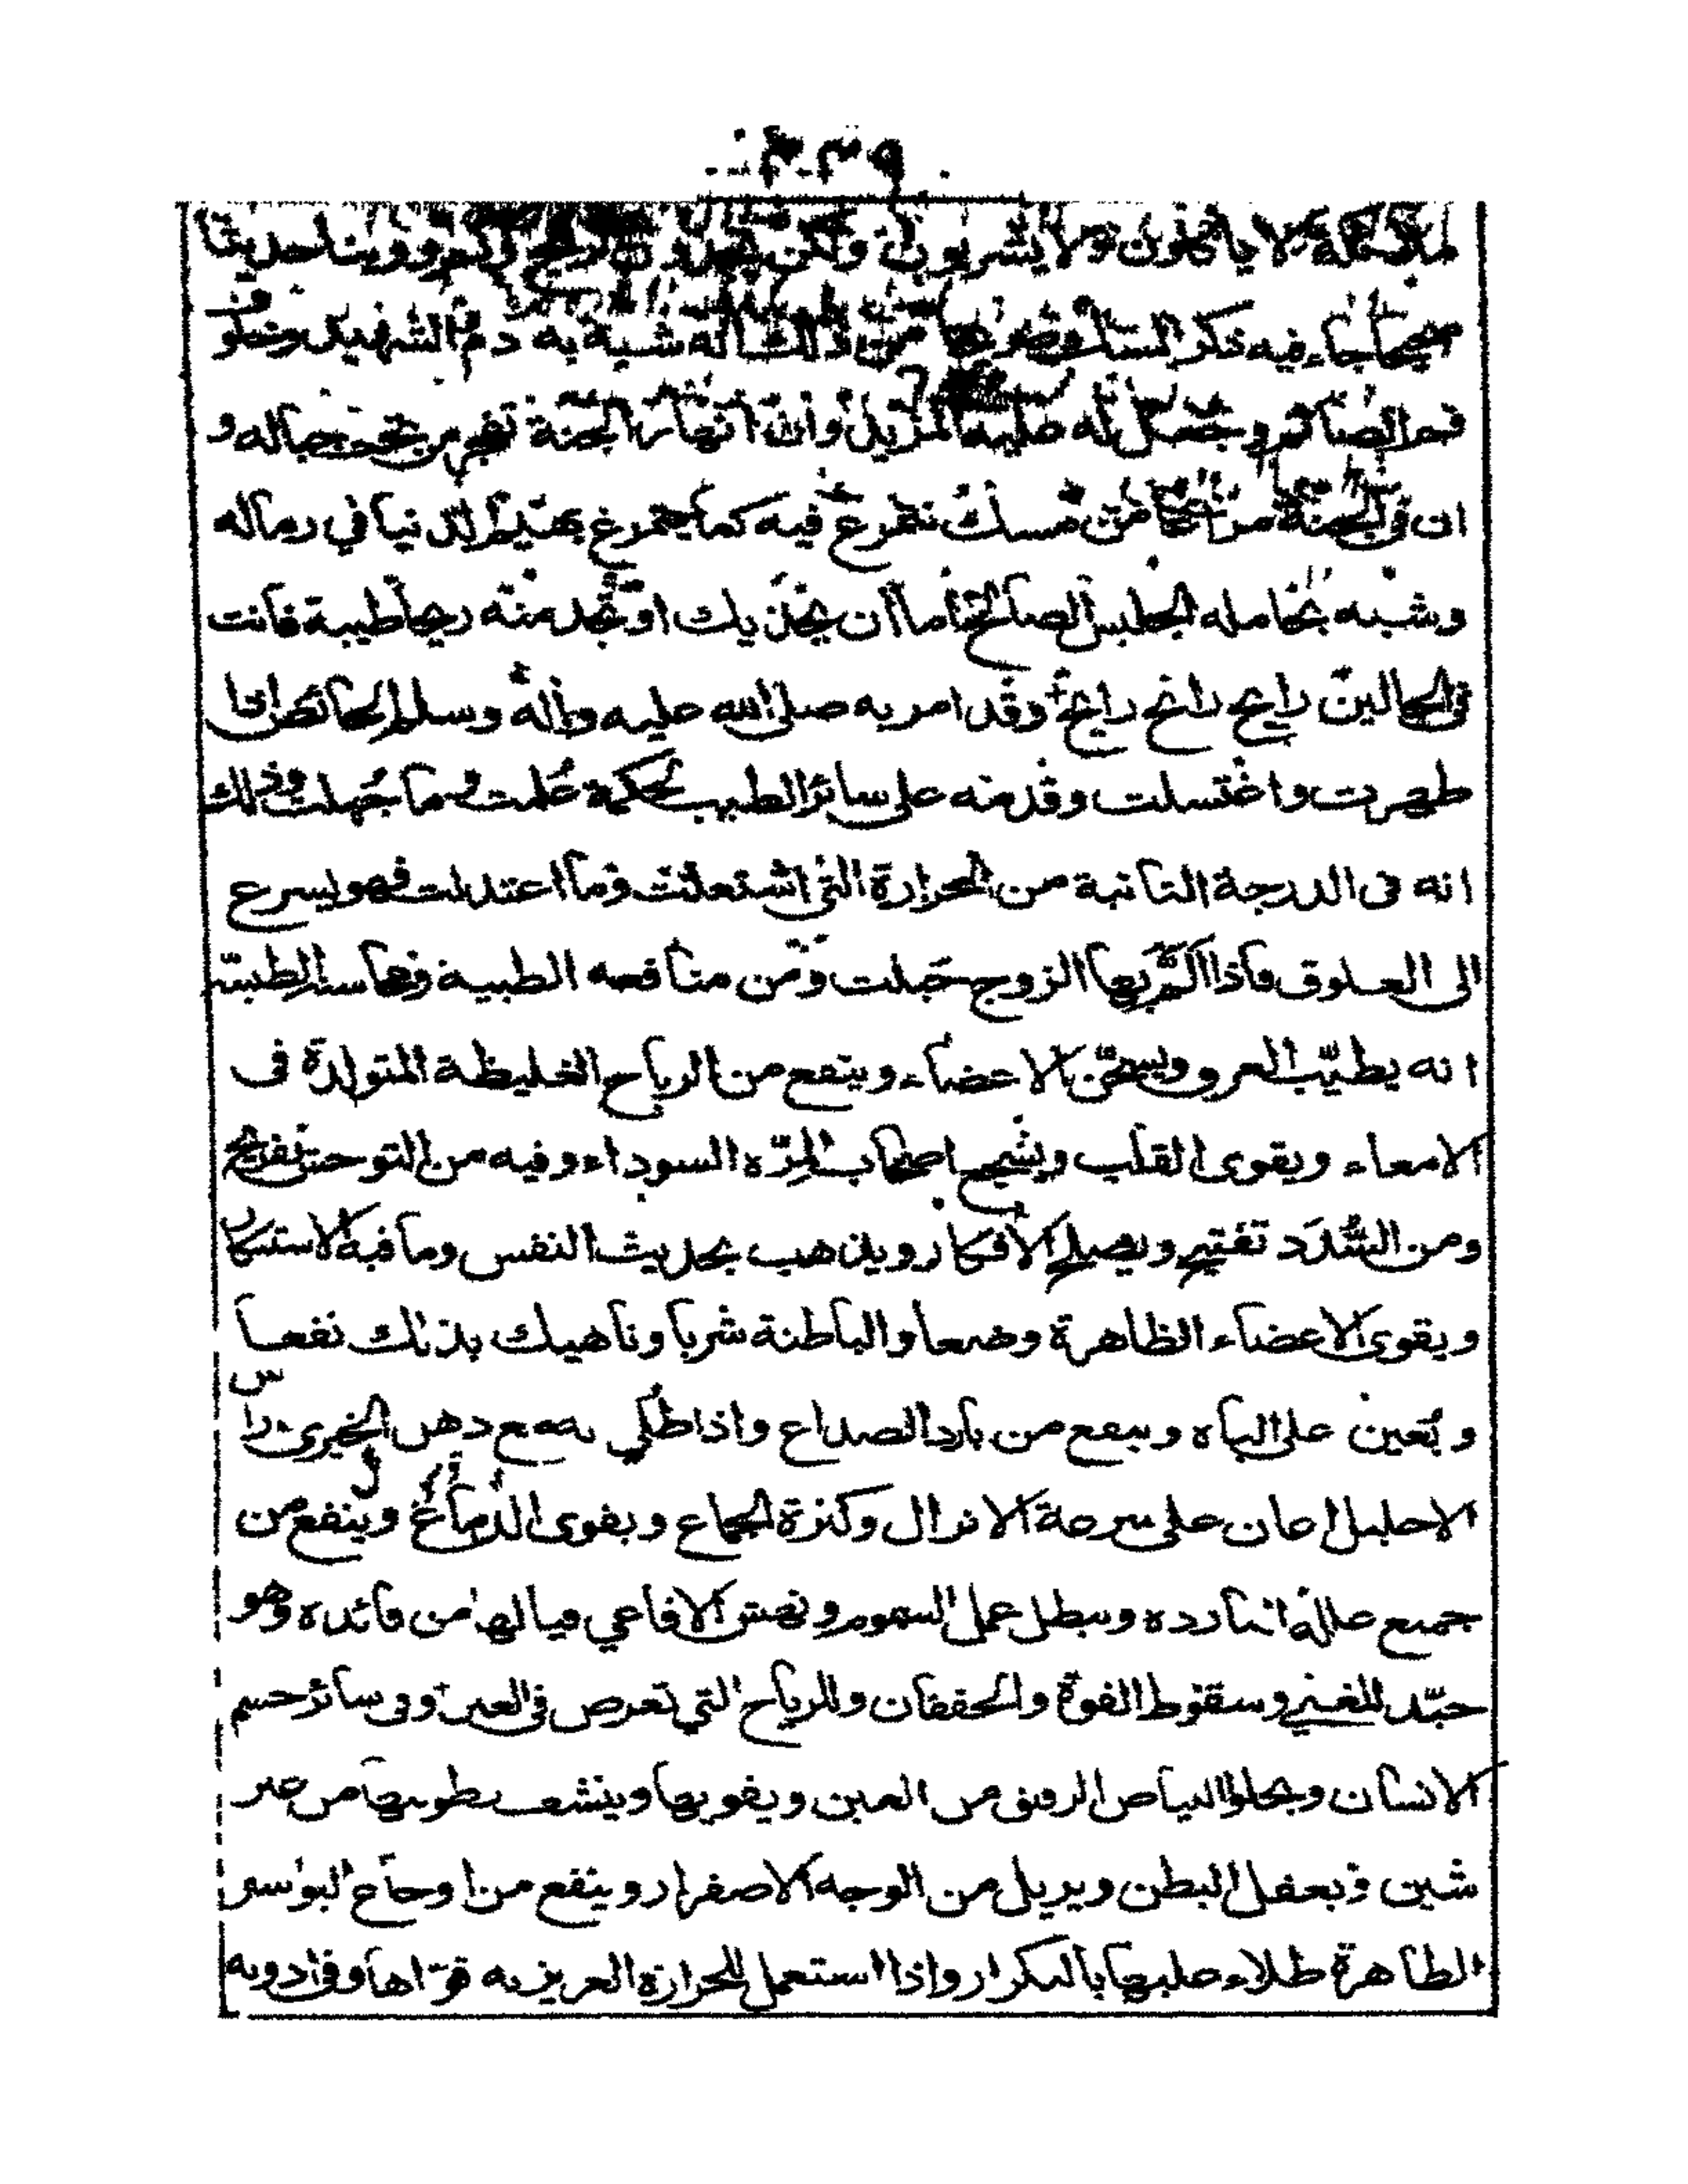 الملائكة لا ياكلون ولا يشربون ولكن يجدون الريح وكم روينا حديثا
صحيحا جاء فيه ذكر المسك من ذلك انه شبه به دم الشهيد وخلوف
فم الصائم وجعل له عليه المزية وان انهار الجنة تفجر من تحت جباله و
ان في الجنة مراغا من مسك تتمرغ فيه كما يتمرغ بهائم الدنيا في رماله
وشبه بحامله الجليس الصالح اما ان يحذيك او تجد منه ريحا طيبة فانت
في الحالين رابح رابح رابح وقد امر به صلى الله عليه واله وسلم الحائض اذا
طهرت واغتسلت وقدمه على سائر الطيب لحكمة علمت وما جهلت وذلك
انه في الدرجة الثانية من الحرارة التي اشتعلت وما اعتدلت فهو يسرع
الى العلوق فاذا الم بها الزوج حبلت ومن منافعه الطبية
انه يطيب العرق ويسخن الاعضاء وينفع من الرياح الغليظة المتولدة في
الامعاء ويقوى القلب ويشجع اصحاب المرة السوداء وفيه من التوحش تفريح
ومن السدد تفتيح ويصلح الافكار ويذهب بحديث النفس وما فيه الاستنكار
ويقوى الاعضاء الظاهرة وضعا والباطنة شربا وناهيك بذلك نفعا
ويعين على الباه وينفع من بارد الصداع واذا طلي به مع دهن الخيرى راس
الاحليل اعان على سرعة الانزال وكثرة الجماع ويقوى الدماغ وينفع من
جميع علله الباردة ويبطل عمل السموم ونهش الافاعي فيالها من فائده وهو
جيد للغشي وسقوط القوة والخفقان وللرياح التي تعرض في العين وفي سائر جسم
الانسان ويجلو البياض الرقيق من العين ويقويها وينشف رطوبتها من غير
شين ويعقل البطن ويزيل من الوجه الاصفرار وينفع من اوجاع البواسير
الظاهرة طلاء عليها بالتكرار واذا استعمل للحرارة الغريزيه قواها وفي ادويه